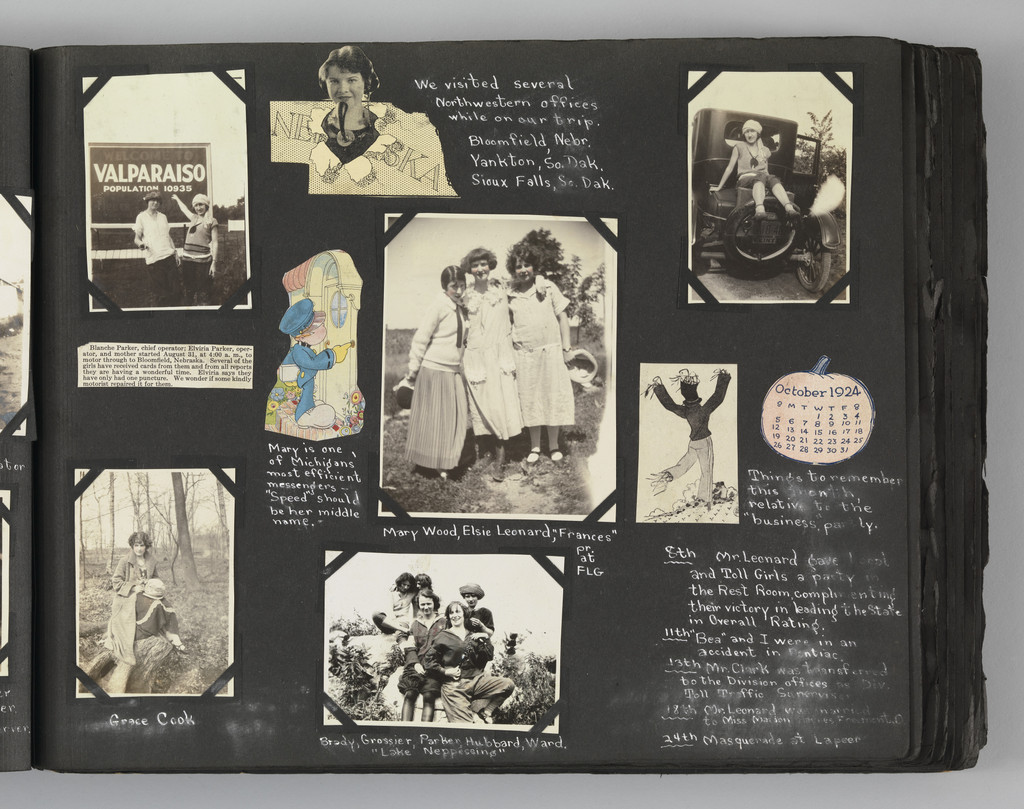 WELCOME TO
VALPARAISO
POPULATION 10935
NE SKA
We visited several
Northwestern offices
while on our trip.
Bloomfield, Nebr.
Yankton, So. Dak.
Sioux Falls, So. Dak.
Blanche Parker, chief operator; Elviria Parker, oper-
ator, and mother started August 31, at 4:00 a. m., to
motor through to Bloomfield, Nebraska. Several of the
girls have received cards from them and from all reports
they are having a wonderful time. Elviria says they
have only had one puncture. We wonder if some kindly
motorist repaired it for them.
Mary is one
of Michigans
most efficient
messengers -
"Speed" should
be her middle
name.
Mary Wood, Elsie Leonard, "Frances"
pr.
at
FLG
October 1924
S M T W T F S
1 2 3 4
5 6 7 8 9 10 11
12 13 14 15 16 17 18
19 20 21 22 23 24 25
26 27 28 29 30 31
Things to remember
this month,
relative to the
"business," partly.
8th Mr. Leonard gave
and Toll Girls a party in
the Rest Room, complimenting
their victory in leading the State
in Overall Rating.
11th "Bea" and I were in an
accident in Pontiac.
13th Mr. Clark was transferred
to the Division offices as Div.
Toll Traffic
18th Mr. Leonard was married
to Miss
24th Masquerade at Lapeer
Grace Cook
Brady, Grossier, Parker, Hubbard, Ward.
"Lake Neppessing"
ator
er
er
rver.